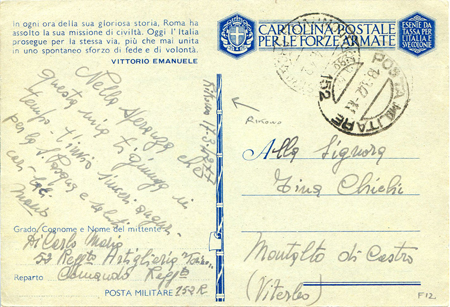 In ogni ora della sua gloriosa storia, Roma ha
assolto la sua missione di civiltà. Oggi l'Italia
prosegue per la stessa via, più che mai unita
in uno spontaneo sforzo di fede e di volontà.
VITTORIO EMANUELE
CARTOLINA POSTALE
PER LE FORZE ARMATE
ESENTE DA
TASSA PER
L'ITALIA E
SUE COLONIE
POSTA MILITARE
152
Nella speranza che
questa mia ti giunga in
tempo t'invio sinceri auguri
per la S. Pasqua e saluti
cari
Mario
RUKONO
Alla Signora
Tina Chichi
Montalto di Castro
(Viterbo)
F12
Grado, Cognome e Nome del mittente
Di Carlo Mario
52 Reggto Artiglieria "Torino"
Reparto Comando Reggto
POSTA MILITARE 152 R